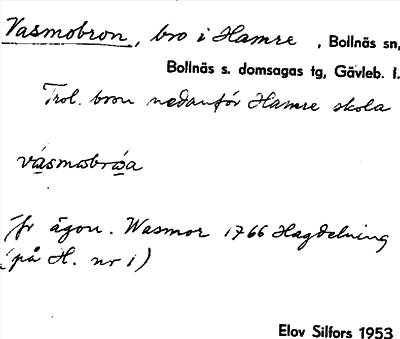 Vasmobron, bro i Hamre, Bollnäs sn,
Bollnäs s. domsagas tg, Gävleb. l.
Trol. bron nedanför Hamre skola
vásmobròa
Jfr ägon. Wasmor 1766 Hagdelning
(på H. nr 1)
Elov Silfors 1953